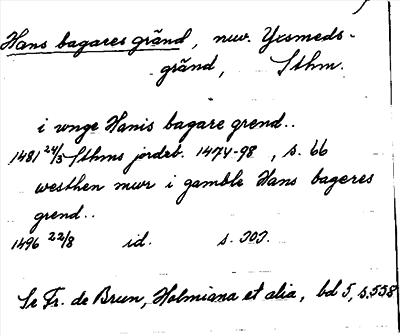 Hans bagares gränd, nuv. Yxsmeds-
gränd, Sthm.
i unge Hanis bagare grend..
1481 24/3 Sthms jordeb. 1474-98, s. 66
westhen mwr i gamble Hans bageres
grend..
1496 22/8 id. s. 303.
Se Fr. de Brun, Holmiana et alia, bd 5, s. 538